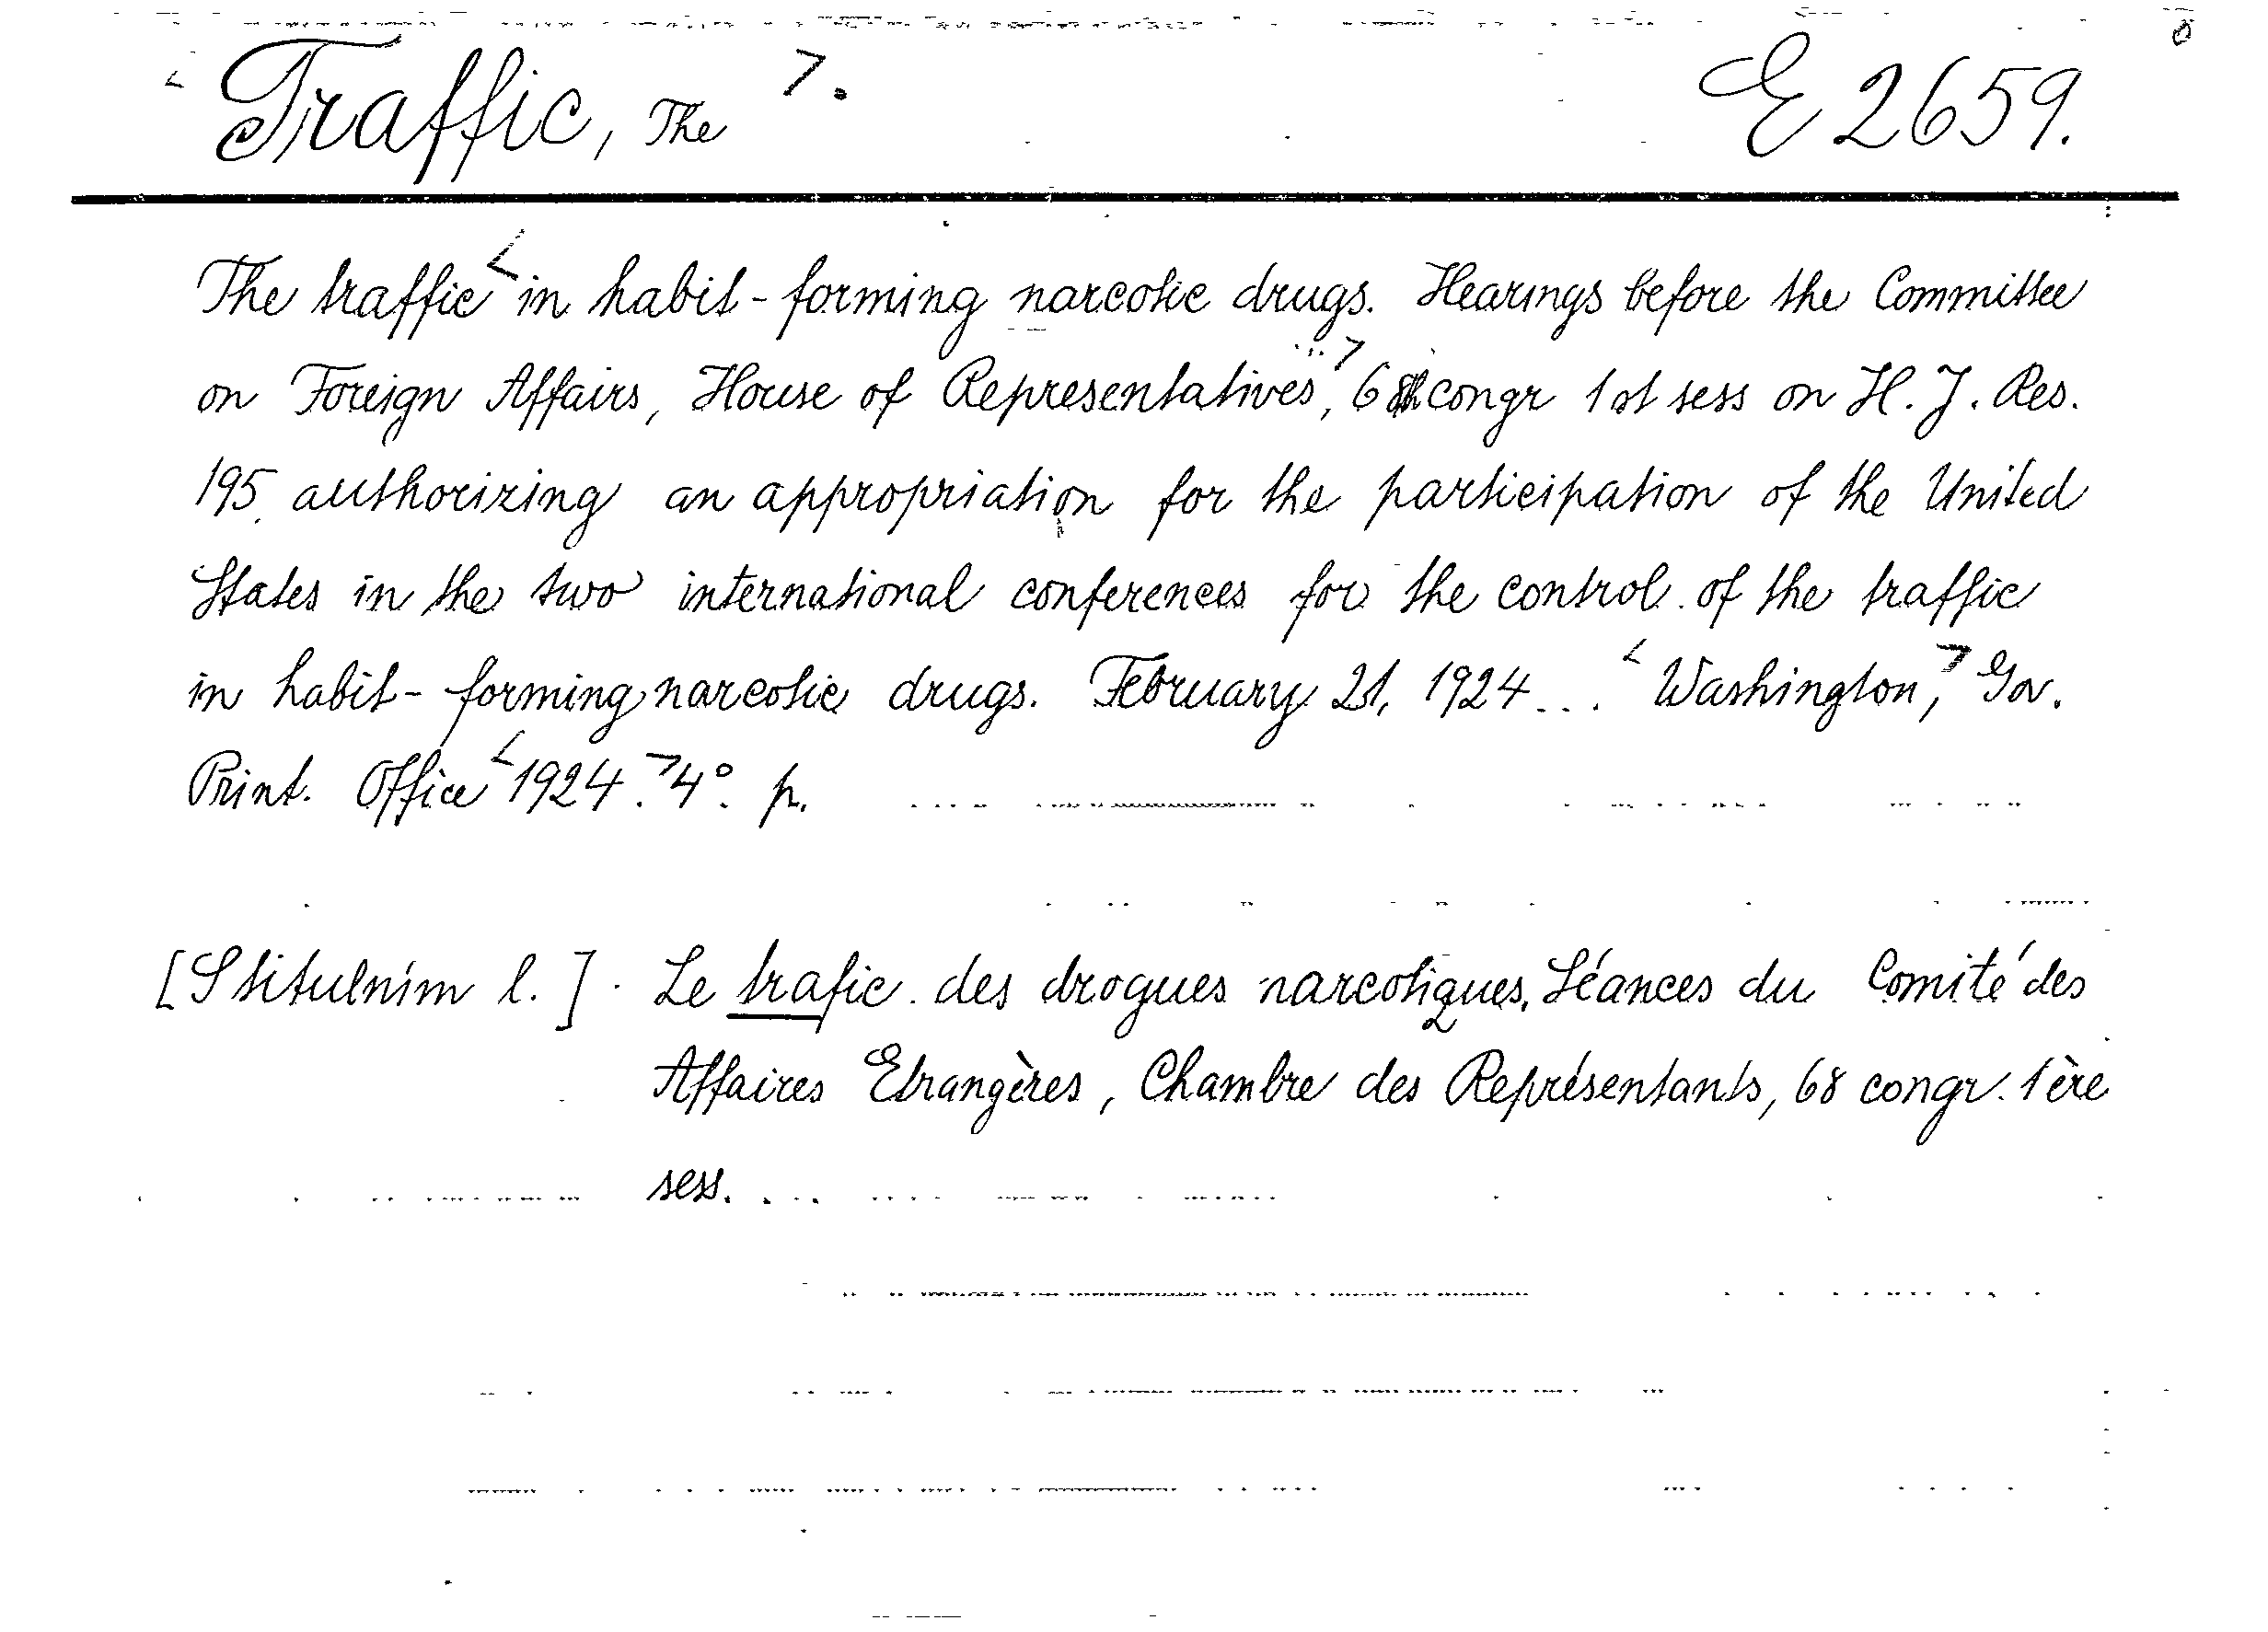 Traffic, The E 2659.
The traffic in habit-forming narcotic drugs. Hearings before the Committee
on Foreign Affairs, House of Representatives, 68th congr 1st sess on H. J. Res.
195 authorizing an appropriation for the participation of the United
States in the two international conferences for the control of the traffic
in habit-forming narcotic drugs. February 21, 1924... Washington, Gov.
Print. Office 1924. 4°. p.
[S titulním l.] Le trafic des drogues narcotiques. Séances du Comité des
Affaires Etrangères, Chambre des Représentants, 68 congr. 1ère
sess. ...